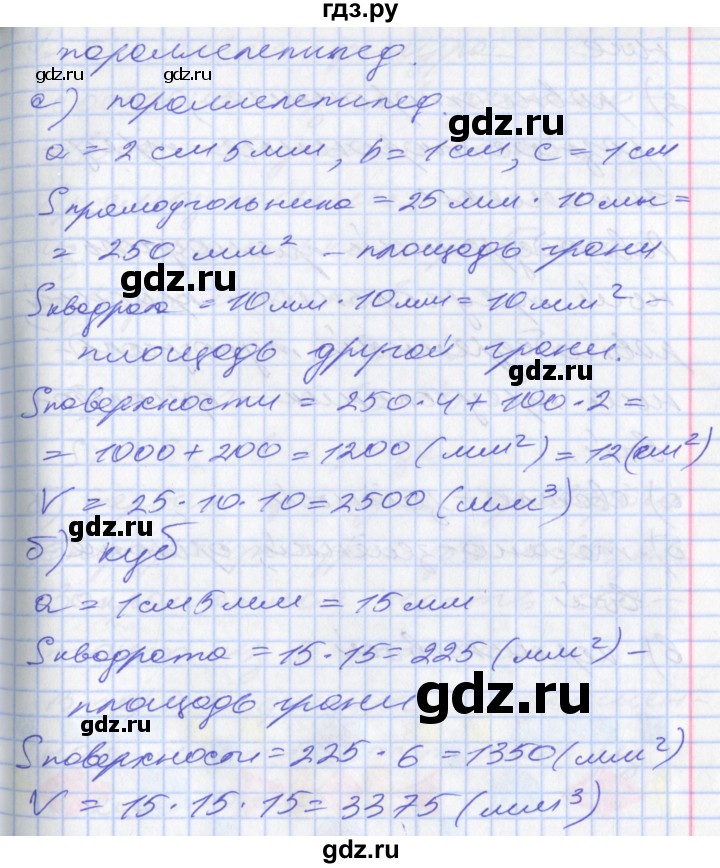 гдз.ру
параллелепипед.
gdz.ru
gdz.ru
а) параллелепипед.
gdz.ru
a = 2 см 5 мм, b = 1 см, c = 1 см
Sпрямоугольника = 25 мм · 10 мм =
= 250 мм² - площадь грани
gdz.ru
Sквадрата = 10 мм · 10 мм = 10 мм² -
площадь другой грани.
gdz.ru
Sповерхности = 250 · 4 + 100 · 2 =
= 1000 + 200 = 1200 (мм²) = 12 (см²)
V = 25 · 10 · 10 = 2500 (мм³)
gdz.ru
б) куб
a = 1 см 5 мм = 15 мм
Sквадрата = 15 · 15 = 225 (мм²) -
площадь грани
gdz.ru
gdz.ru
Sповерхности = 225 · 6 = 1350 (мм²)
V = 15 · 15 · 15 = 3375 (мм³)
gdz.ru
gdz.ru